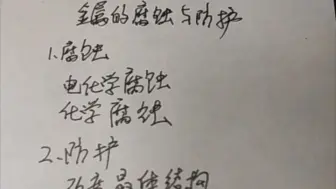 金属的腐蚀与防护
1.腐蚀
电化学腐蚀
化学腐蚀
2.防护
改变晶体结构